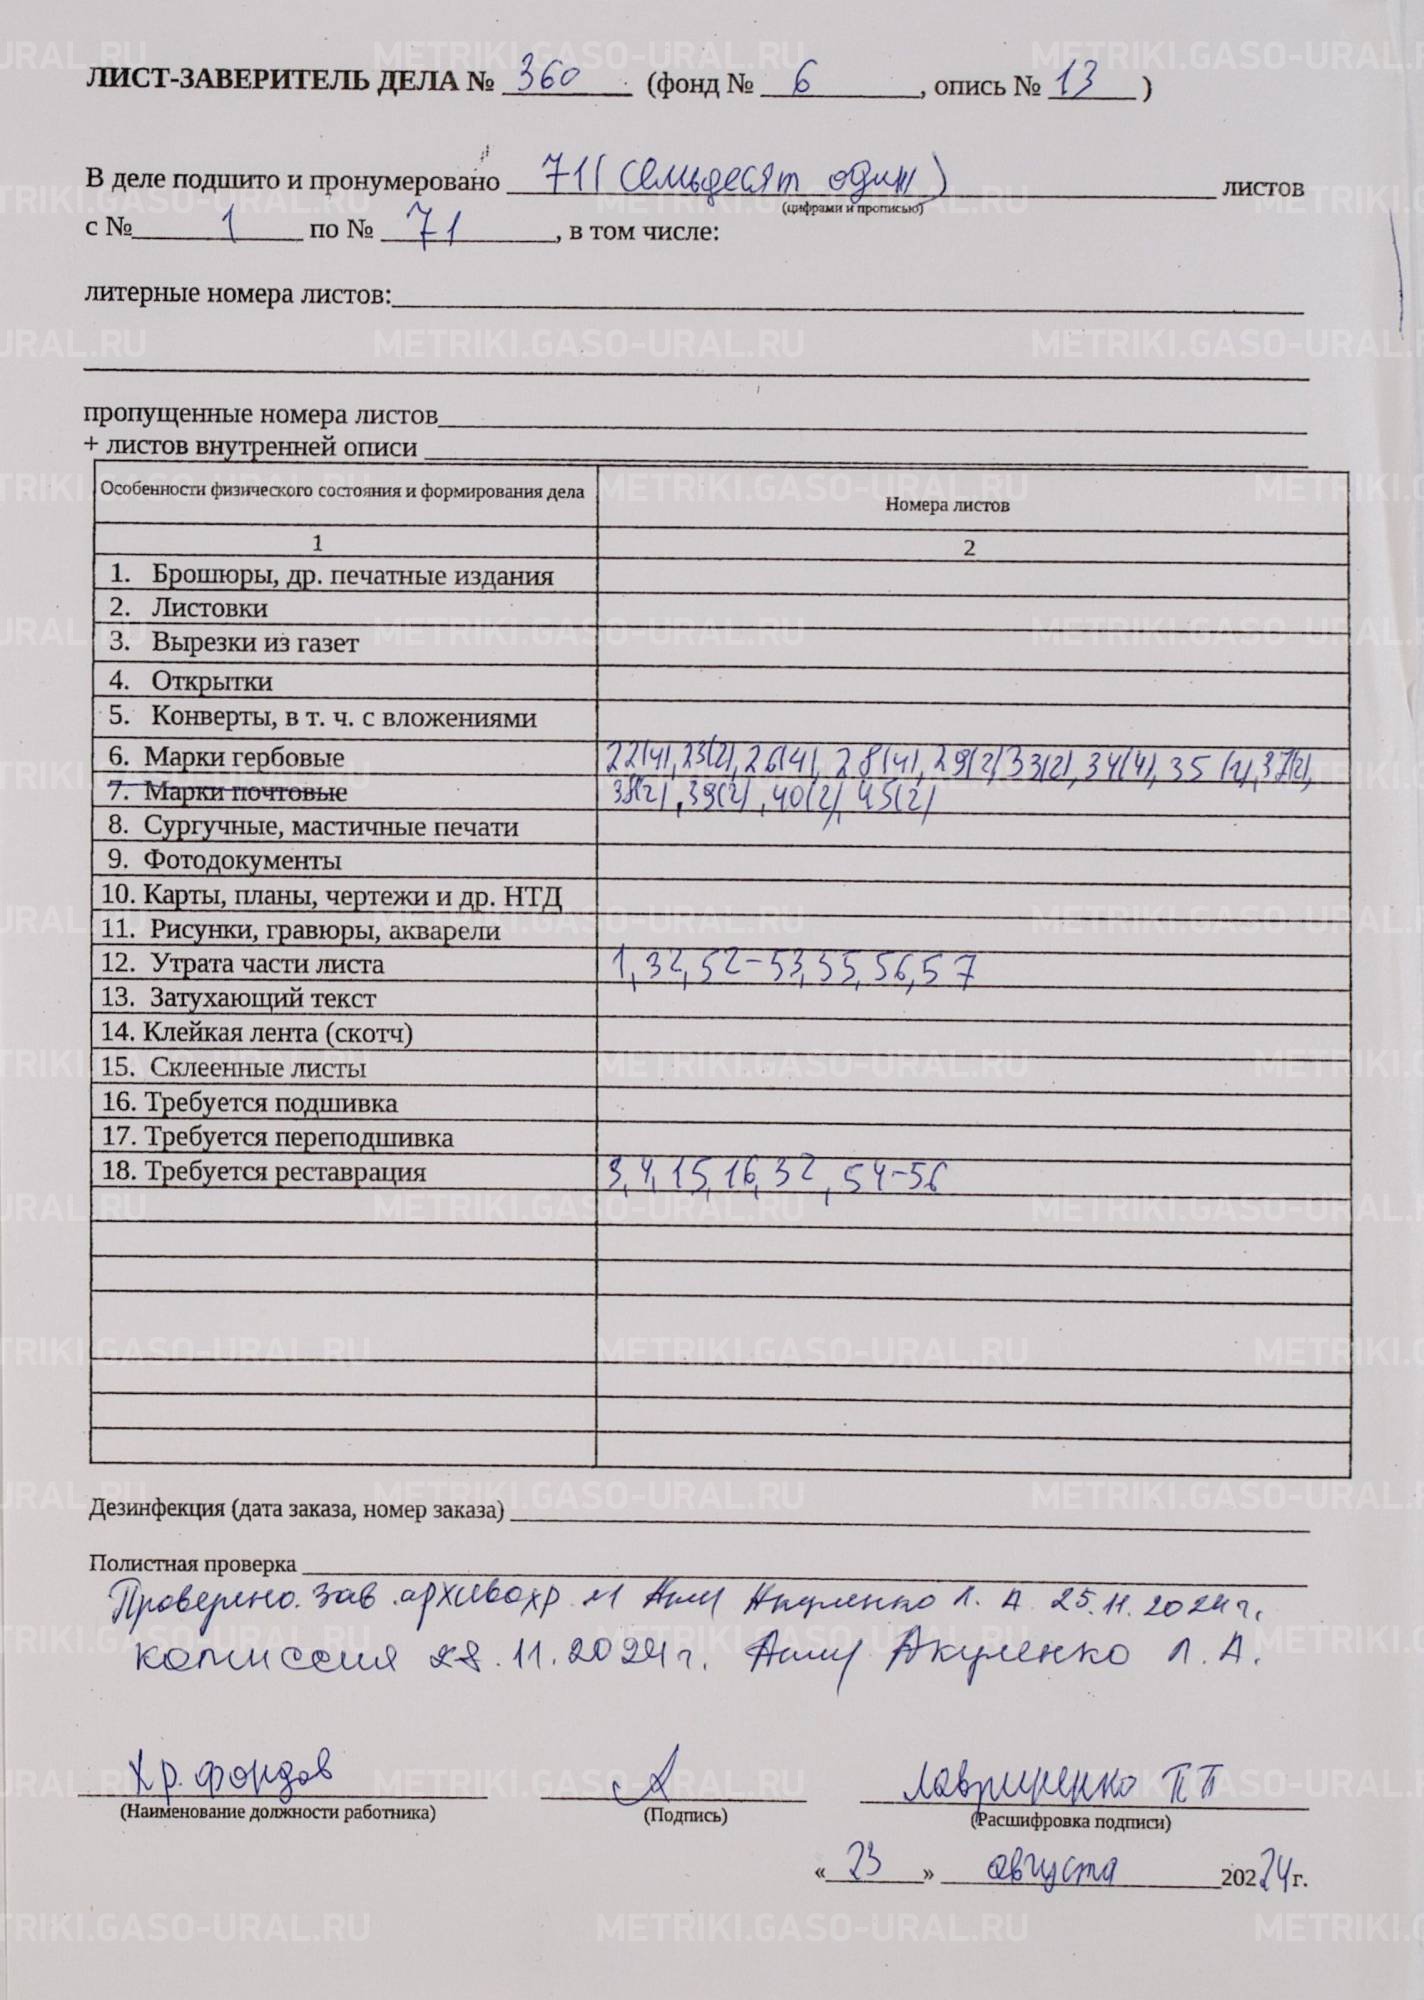 ЛИСТ-ЗАВЕРИТЕЛЬ ДЕЛА № 360 (фонд № 6, опись № 13)
В деле подшито и пронумеровано 71 (семьдесят один) листов
(цифрами и прописью)
с № 1 по № 71, в том числе:
литерные номера листов:
пропущенные номера листов
+ листов внутренней описи
Особенности физического состояния и формирования дела Номера листов
1 2
1. Брошюры, др. печатные издания
2. Листовки
3. Вырезки из газет
4. Открытки
5. Конверты, в т. ч. с вложениями
6. Марки гербовые 22(4), 23(2), 26(4), 28(4), 29(2), 33(2), 34(4), 35(2), 37(2),
7. Марки почтовые 38(2), 39(2), 40(2), 45(2)
8. Сургучные, мастичные печати
9. Фотодокументы
10. Карты, планы, чертежи и др. НТД
11. Рисунки, гравюры, акварели
12. Утрата части листа 1, 32, 52-53, 55, 56, 57
13. Затухающий текст
14. Клейкая лента (скотч)
15. Склеенные листы
16. Требуется подшивка
17. Требуется переподшивка
18. Требуется реставрация 3, 4, 15, 16, 32, 54-56
Дезинфекция (дата заказа, номер заказа)
Полистная проверка
Проверено. Зав. архивохр. Акуленко Л. А. 25.11.2024г.
комиссия 28.11.2024г. Акуленко Л. А.
Хр. фондов Лавриненко ПП
(Наименование должности работника) (Подпись) (Расшифровка подписи)
«23» августа 2024г.
METRIKI.GASO-URAL.RU